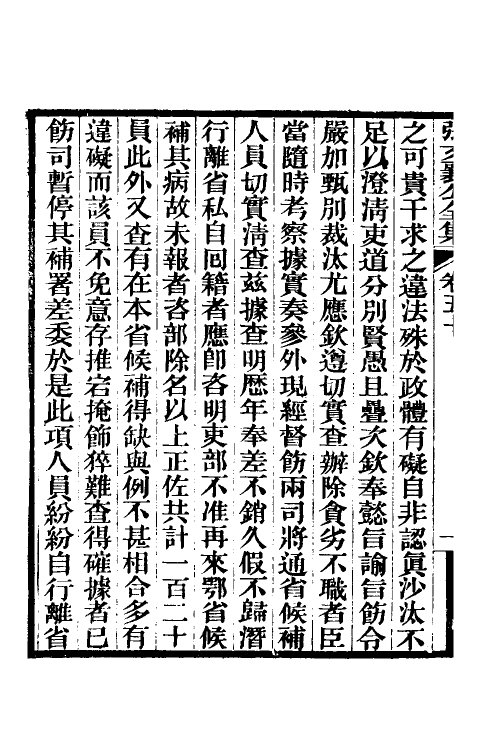 張文襄公全集 卷五十 一
之可貴千求之違法殊於政體有礙自非認眞沙汰不
足以澄清吏道分別賢愚且疊次欽奉懿旨諭旨飭令
嚴加甄別裁汰尤應欽遵切實查辦除貪劣不職者臣
當隨時考察據實奏參外現經督飭兩司將通省候補
人員切實清查茲據查明歷年奉差不銷久假不歸潛
行離省私自回籍者應卽咨明吏部不准再來鄂省候
補其病故未報者咨部除名以上正佐共計一百二十
員此外又查有在本省候補得缺與例不甚相合多有
違礙而該員不免意存推宕掩飾猝難查得確據者已
飭司暫停其補署差委於是此項人員紛紛自行離省